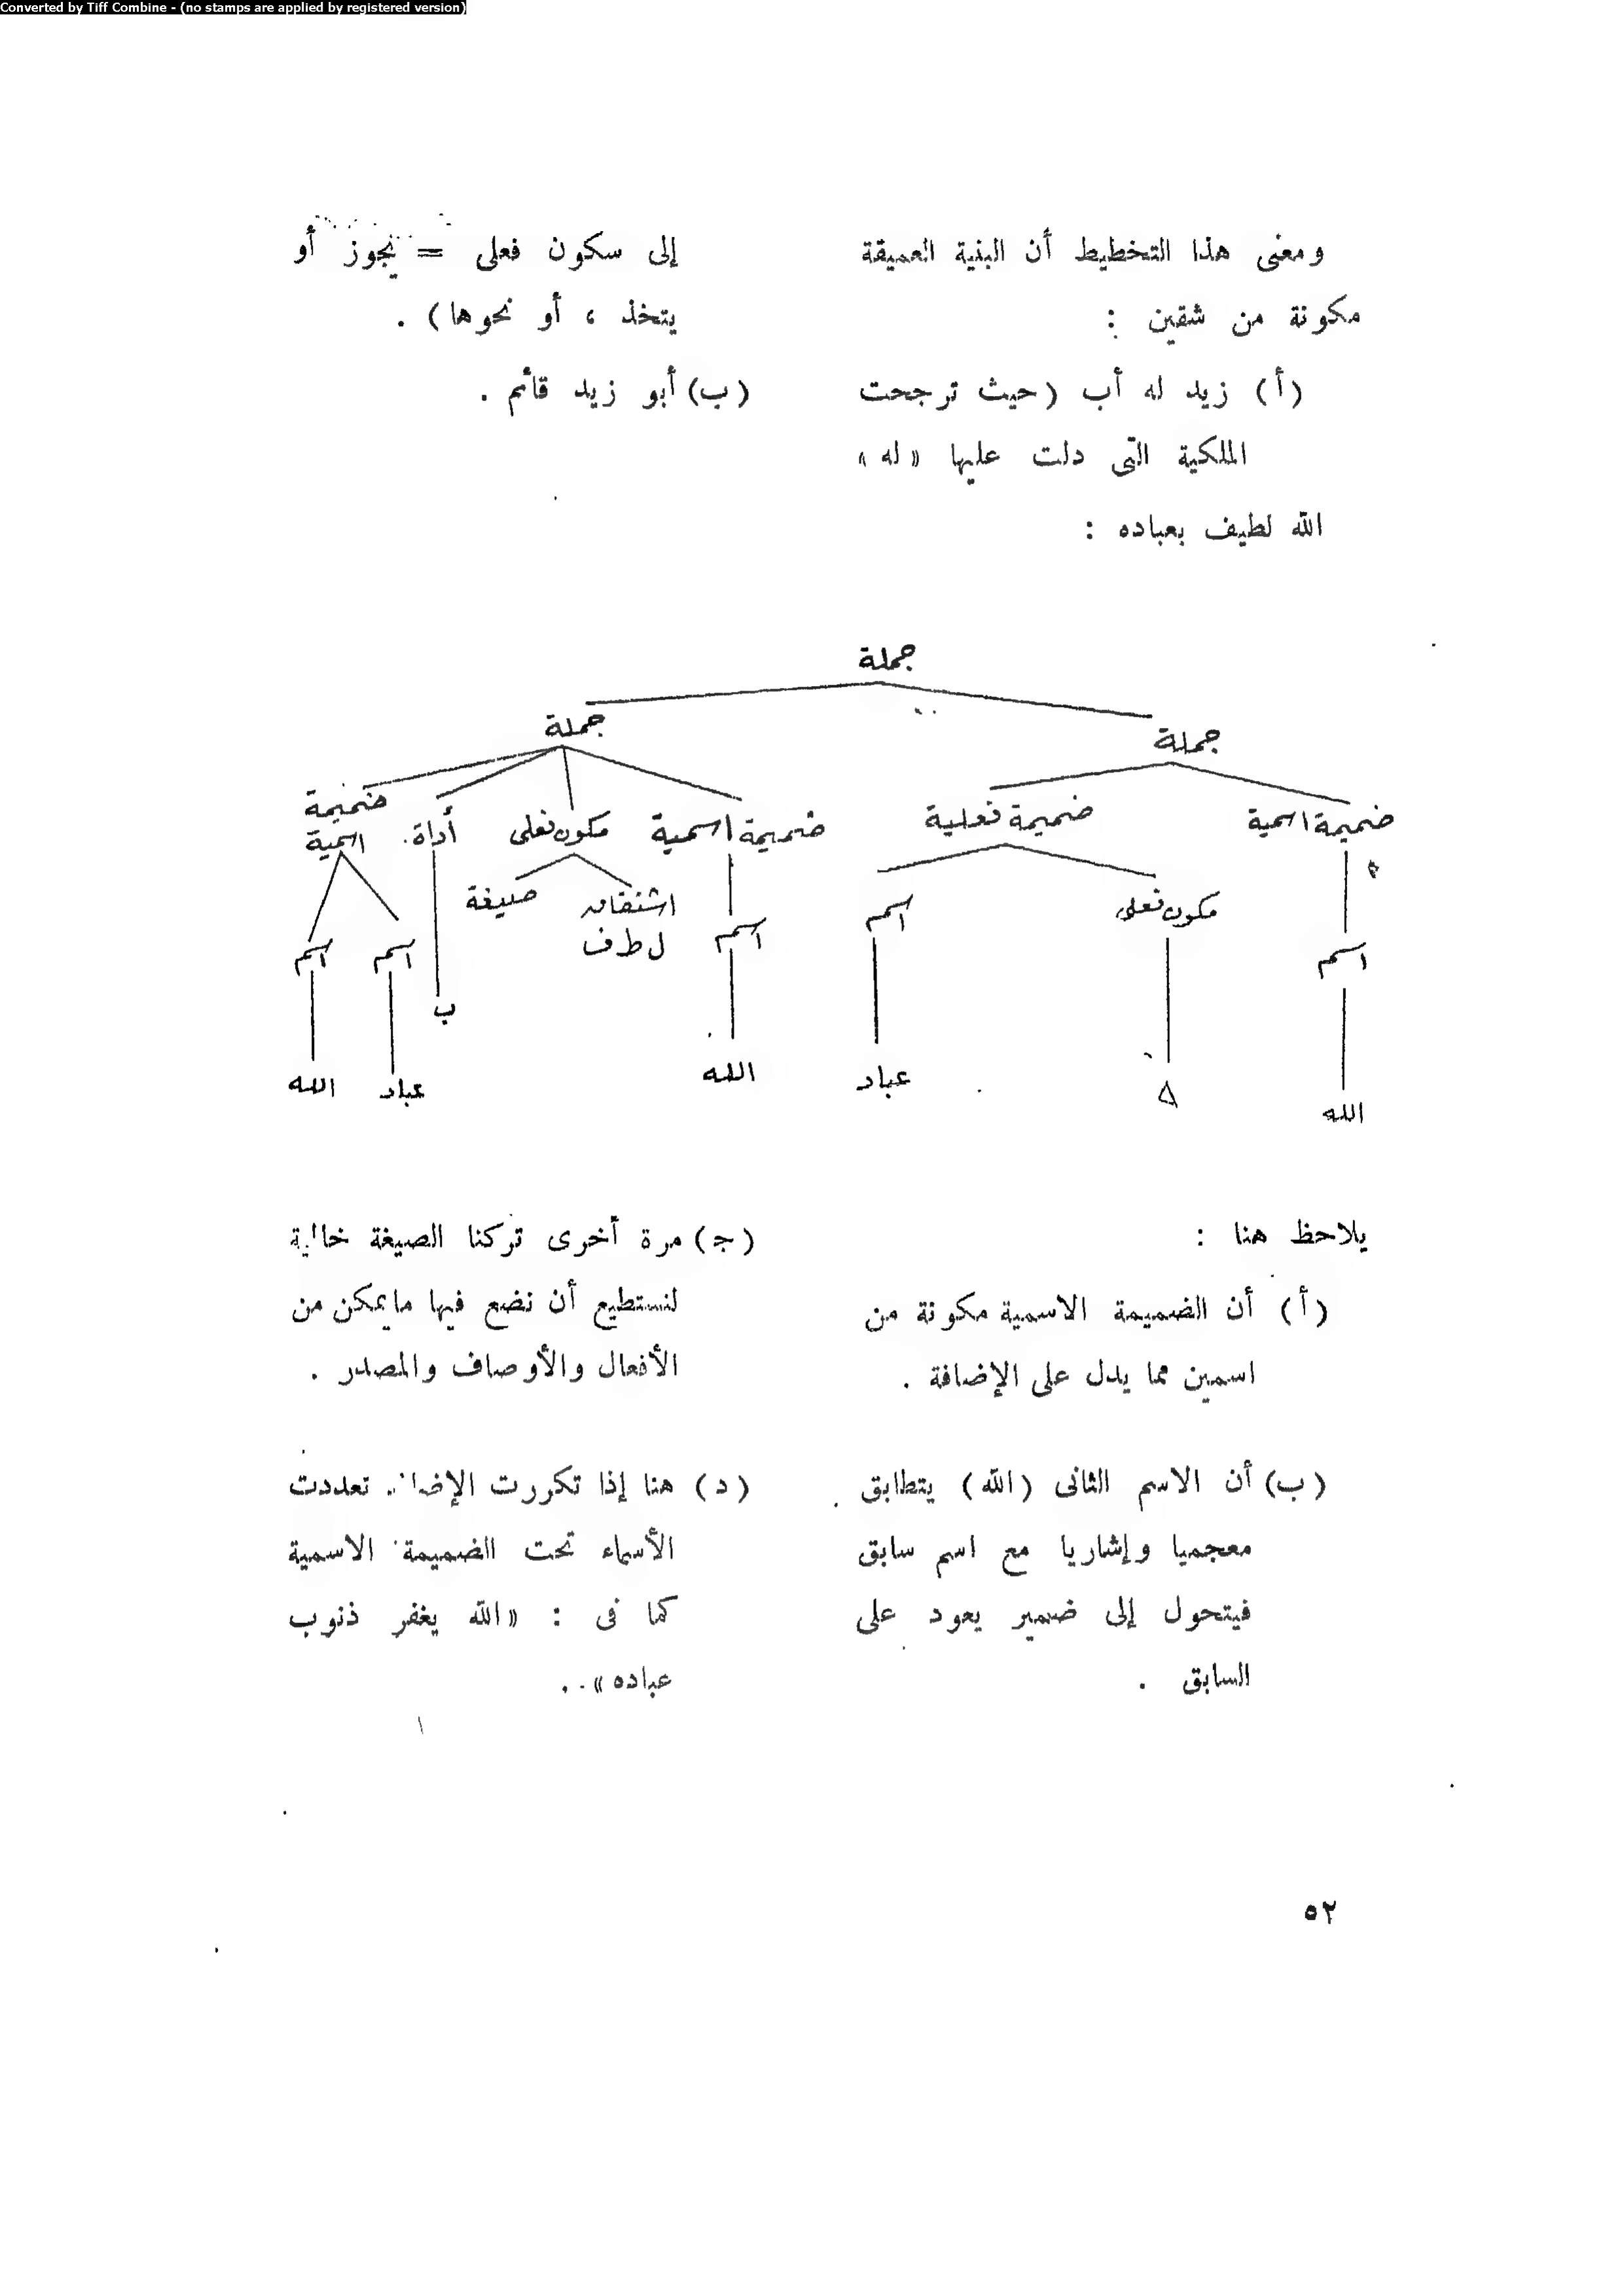 Converted by Tiff Combine - (no stamps are applied by registered version)
ومعنى هذا التخطيط أن البنية العميقة
مكونة من شقين :
(أ) زيد له أب (حيث ترجحت
الملكية التى دلت عليها «له»
إلى سكون فعلى = يجوز أو
يتخذ ، أو نحوها) .
(ب) أبو زيد قائم .
الله لطيف بعباده :
جملة
جملة جملة
ضميمة اسمية ضميمة فعلية ضميمة اسمية مكون فعلى أداة ضميمة
اسمية
اسم مكون فعلى اسم اسم اشتقاق صيغة اسم اسم
ل ط ف
ب
الله Δ عباد الله عباد الله
يلاحظ هنا :
(أ) أن الضميمة الاسمية مكونة من
اسمين مما يدل على الإضافة .
(ب) أن الاسم الثانى (الله) يتطابق
معجميا وإشاريا مع اسم سابق
فيتحول إلى ضمير يعود على
السابق .
(جـ) مرة أخرى تركنا الصيغة خالية
لنستطيع أن نضع فيها مايمكن من
الأفعال والأوصاف والمصدر .
(د) هنا إذا تكررت تعددت
الأسماء تحت الضميمة الاسمية
كما فى : «الله يغفر ذنوب
عباده» .
٥٢